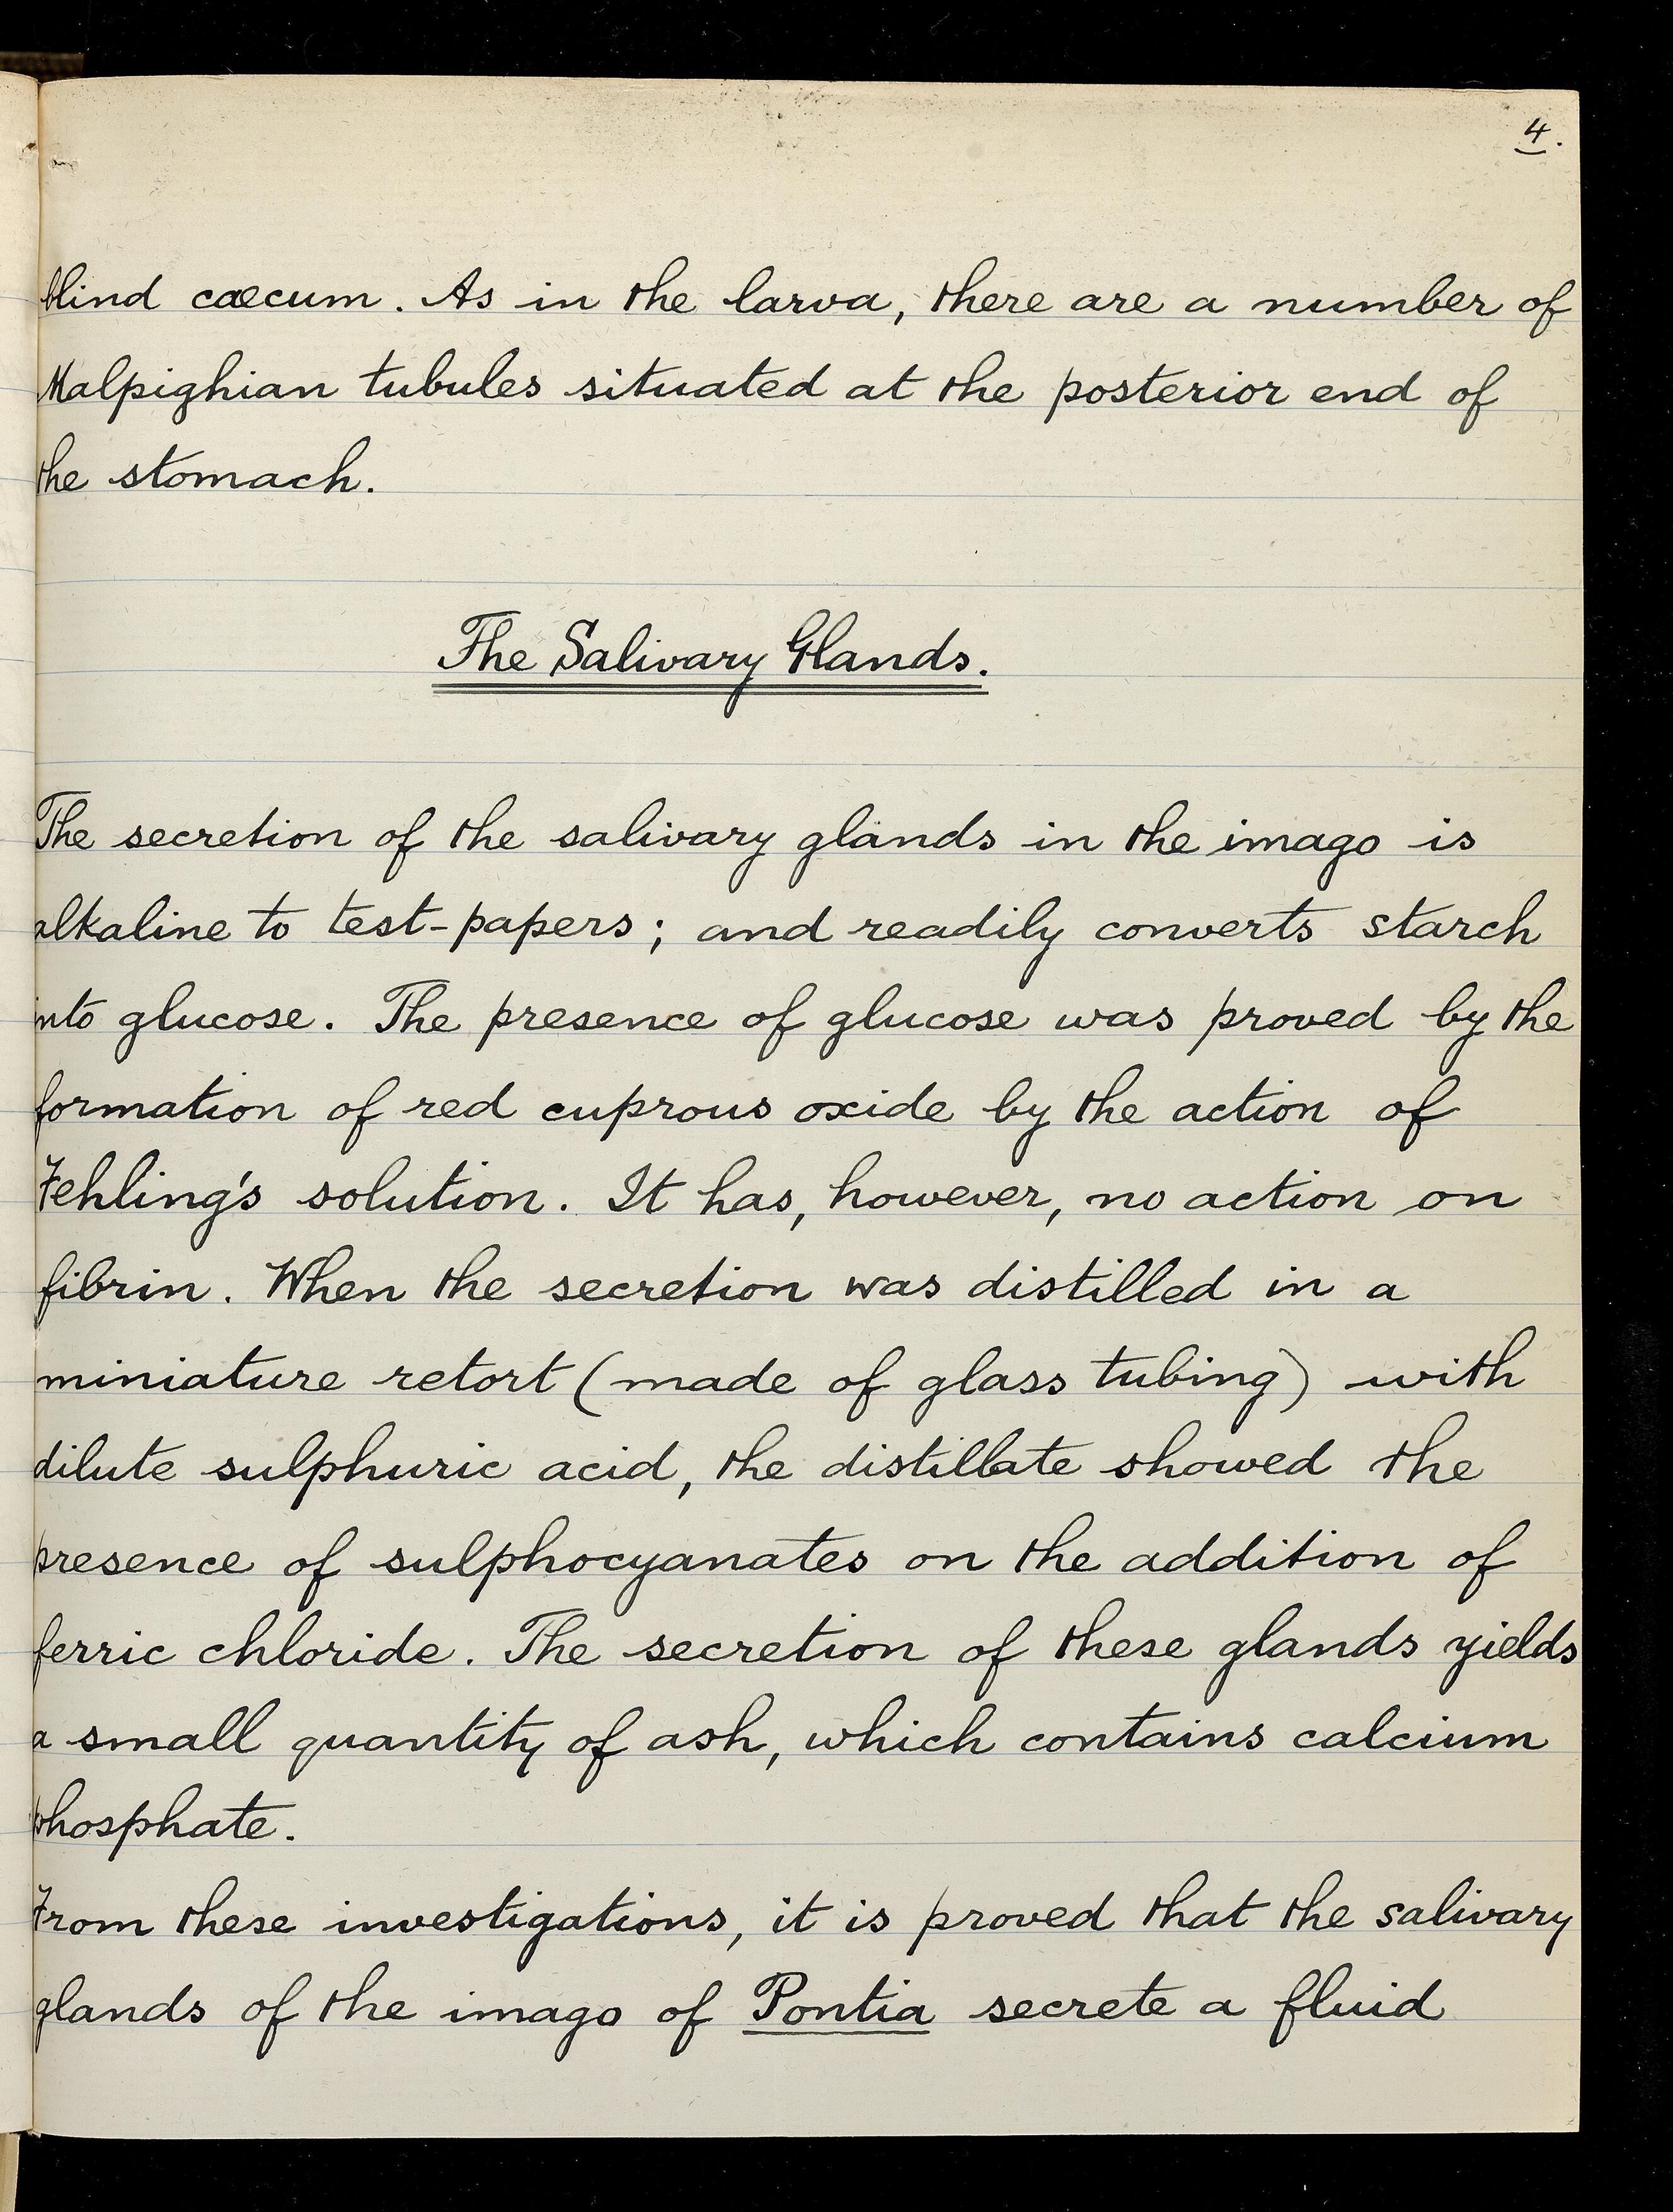 4.
blind cæcum. As in the larva, there are a number of
Malpighian tubules situated at the posterior end of
the stomach.
The Salivary Glands.
The secretion of the salivary glands in the imago is
alkaline to test-papers; and readily converts starch
into glucose. The presence of glucose was proved by the
formation of red cuprous oxide by the action of
Fehling's solution. It has, however, no action on
fibrin. When the secretion was distilled in a
miniature retort (made of glass tubing) with
dilute sulphuric acid, the distillate showed the
presence of sulphocyanates on the addition of
ferric chloride. The secretion of these glands yields
a small quantity of ash, which contains calcium
phosphate.
From these investigations, it is proved that the salivary
glands of the imago of Pontia secrete a fluid